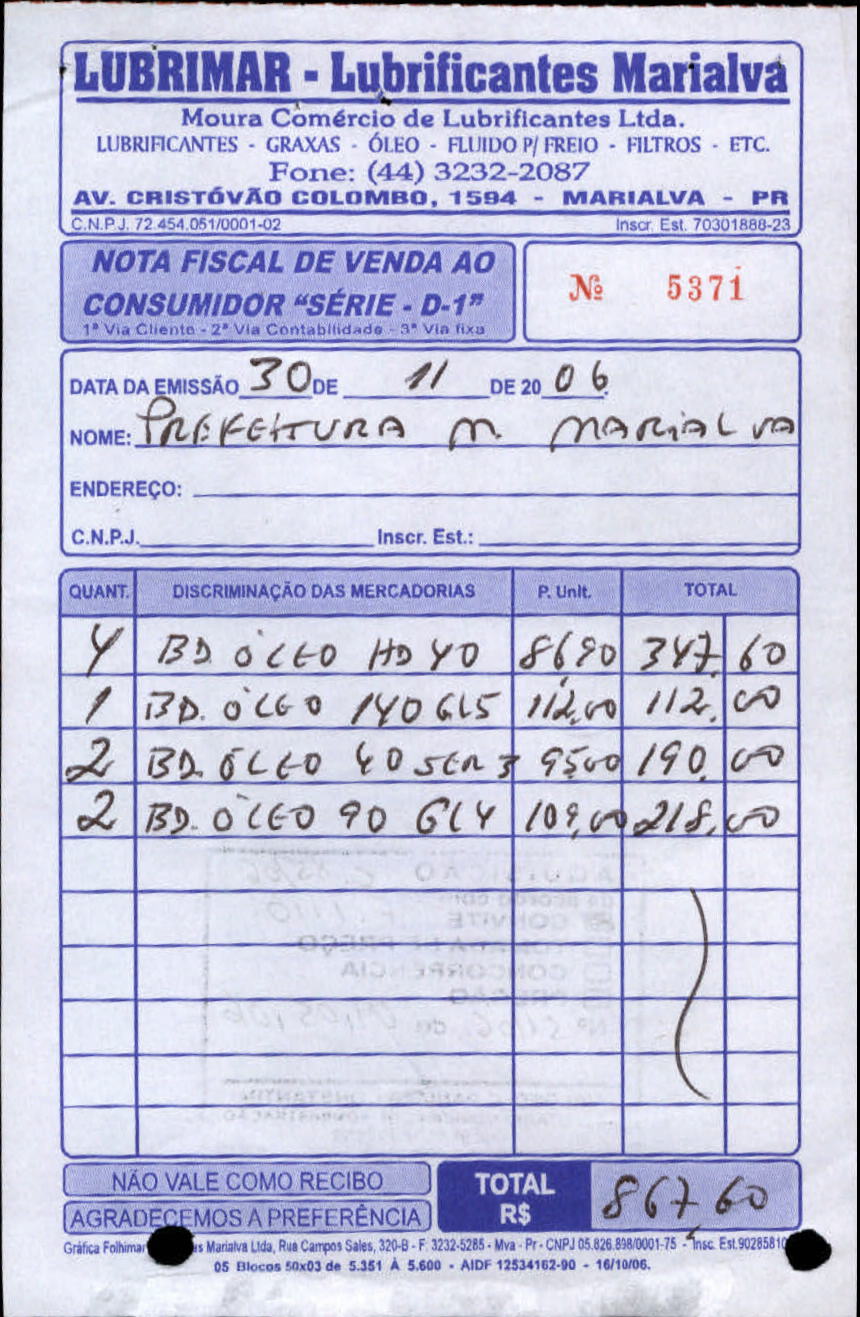 LUBRIMAR - Lubrificantes Marialva
Moura Comércio de Lubrificantes Ltda.
LUBRIFICANTES - GRAXAS - ÓLEO - FLUIDO P/ FREIO - FILTROS - ETC.
Fone: (44) 3232-2087
AV. CRISTÓVÃO COLOMBO, 1594 - MARIALVA - PR
C.N.P.J. 72.454.051/0001-02 Inscr. Est. 70301888-23
NOTA FISCAL DE VENDA AO
CONSUMIDOR "SÉRIE - D-1"
1ª Via Cliente - 2ª Via Contabilidade - 3ª Via fixa
Nº 5371
DATA DA EMISSÃO 30 DE 11 DE 20 06
NOME: PREFEITURA M. MARIALVA
ENDEREÇO:
C.N.P.J. Inscr. Est.:
QUANT. DISCRIMINAÇÃO DAS MERCADORIAS P. Unit. TOTAL
4 BD. ÓLEO HD 40 86,90 347,60
1 BD. ÓLEO 140 GL5 112,00 112,00
2 BD. ÓLEO 40 SER 3 95,00 190,00
2 BD. ÓLEO 90 GL4 109,00 218,00
AQUISIÇÃO
de acordo com
CONVITE
TOMADA DE PREÇO
CONCORRÊNCIA
PREGÃO
NÃO VALE COMO RECIBO
AGRADECEMOS A PREFERÊNCIA
TOTAL R$ 867,60
Gráfica Folhimar Marialva Ltda, Rua Campos Sales, 320-B - F. 3232-5285 - Mva - Pr - CNPJ 05.826.898/0001-75 - Insc. Est.90285810
05 Blocos 50x03 de 5.351 À 5.600 - AIDF 12534162-90 - 16/10/06.